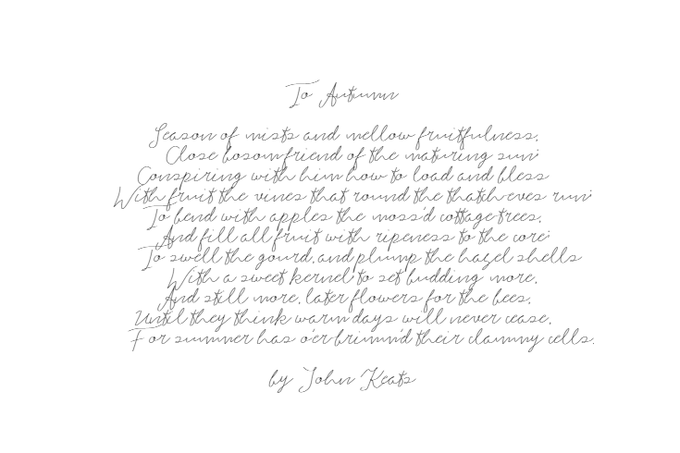 To Autumn
Season of mists and mellow fruitfulness,
Close bosom friend of the maturing sun;
Conspiring with him how to load and bless
With fruit the vines that round the thatch-eves run;
To bend with apples the moss'd cottage trees,
And fill all fruit with ripeness to the core;
To swell the gourd, and plump the hazel shells
With a sweet kernel; to set budding more,
And still more, later flowers for the bees,
Until they think warm days will never cease,
For summer has o'er-brimm'd their clammy cells.
by John Keats